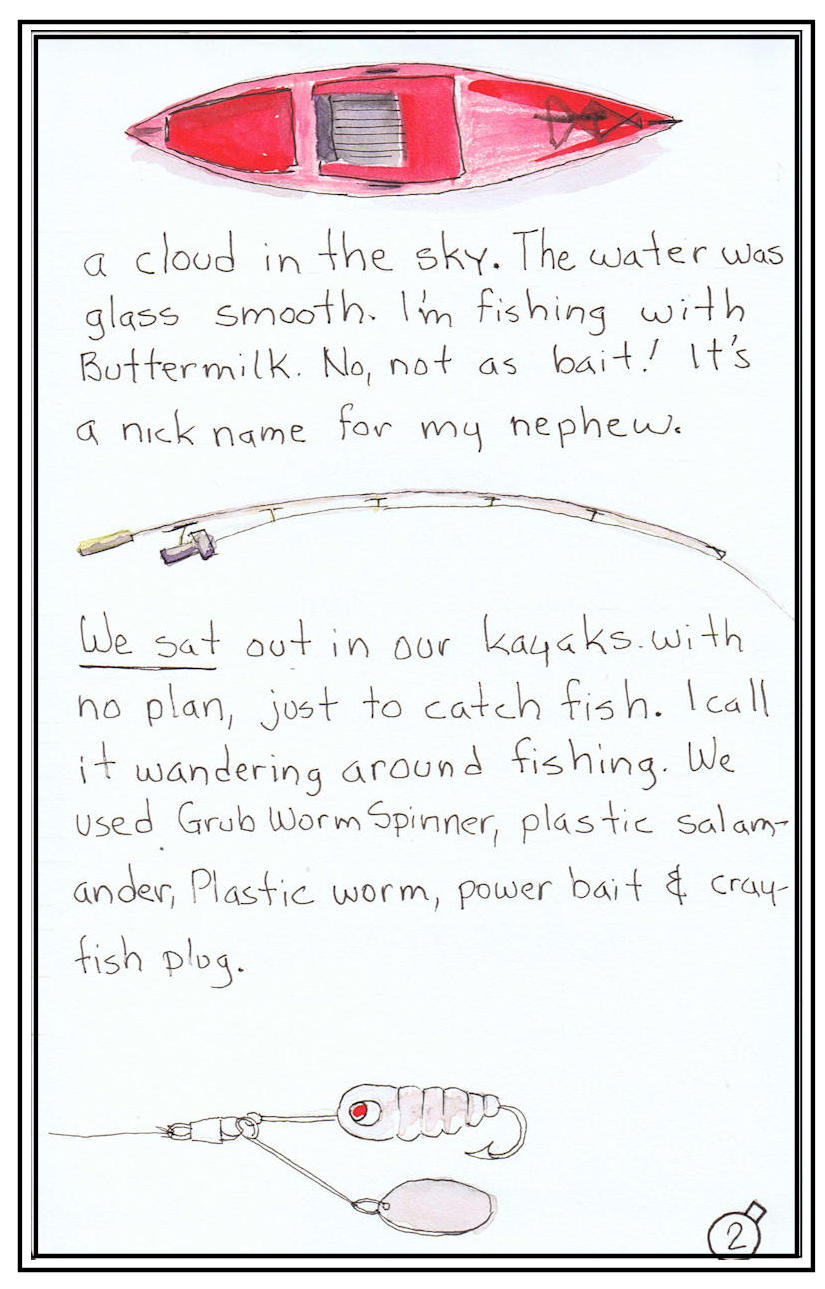 a cloud in the sky. The water was
glass smooth. I'm fishing with
Buttermilk. No, not as bait! It's
a nick name for my nephew.
We sat out in our kayaks with
no plan, just to catch fish. I call
it wandering around fishing. We
used Grub Worm Spinner, plastic salam-
ander, Plastic worm, power bait & cray-
fish plug.
2